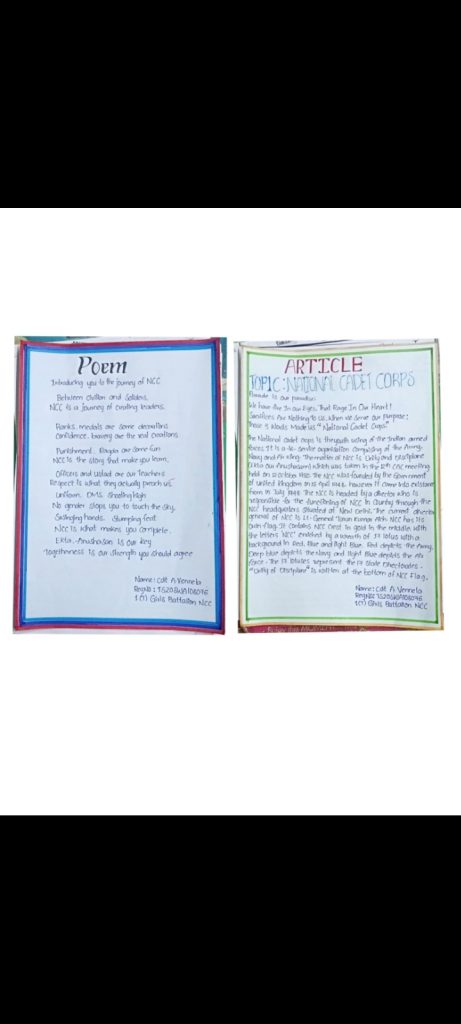 Poem
Introducing you to the journey of NCC
Between chillan and Golden,
NCC is a journey of creating leaders.
Ranks, medals are some decorations
confidence, bravery are the real creations
Punishment, Ragda are some fun
NCC is the story that make you learn,
Officers and Ustad are our teachers
Respect is what they actually preach us
Uniform, DMS shooting high
No gender stops you to touch the sky.
hands, stumping feet
NCC is what makes you complete.
Ekta - Anushasan is our key
togetherness is our strength you should agree
Name: Cdt A Vennela
1(T) Girls Battalion NCC
ARTICLE
TOPIC: NATIONAL CADET CORPS
Parade is our paradise!
We have fire In our Eyes, That Rage In Our Heart!
Sacrifices Are Nothing to us, when we serve our Purpose!
Those 3 Words Made us "National Cadet Corps"
the National cadet corps is the youth wing of the Indian armed
forces. It is a tri-service organisation comprising of the Army,
Navy and Air wing. The motto of NCC is Unity and Discipline
(Ekta aur Anushasan) which was taken in the 12th CAC meeting
held on 12 october 1980. The NCC was founded by the Government
of united kingdom on 15 April 1948. however it came into existance
from 15 July 1948. The NCC is headed by a director who is
responsible for the functioning of NCC in country through the
NCC headquarters situated at New Delhi. The current director
general of NCC is Lt - General Tarun Kumar Aich. NCC has its
own flag. It contains NCC crest in gold in the middle, with
the letters 'NCC' encircled by a wreath of 17 lotus with a
background in Red, Blue and light Blue. Red depicts the Army,
Deep blue depicts the Navy and light Blue depicts the Air
force. The 17 lotuses represent the 17 State Directorates.
"Unity & Discipline" is written at the bottom of NCC Flag.
Name: Cdt A Vennela
1(T) Girls Battalion NCC